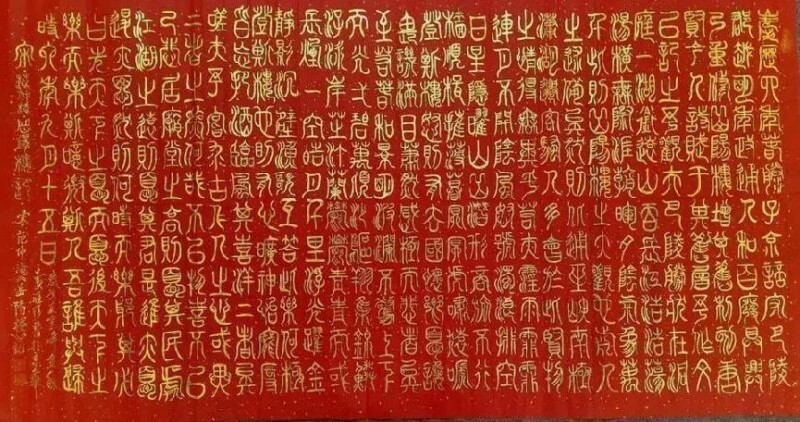 慶歷四年春滕子京謫守巴陵
郡越明年政通人和百廢具興
乃重修岳陽樓增其舊制刻唐
賢今人詩賦于其上屬予作文
以記之予觀夫巴陵勝狀在洞
庭一湖銜遠山吞長江浩浩湯
湯橫無際涯朝暉夕陰氣象萬
千此則岳陽樓之大觀也前人
之述備矣然則北通巫峽南極
瀟湘遷客騷人多會於此覽物
之情得無異乎若夫霪雨霏霏
連月不開陰風怒號濁浪排空
日星隱曜山岳潛形商旅不行
檣傾楫摧薄暮冥冥虎嘯猿啼
登斯樓也則有去國懷鄉憂讒
畏譏滿目蕭然感極而悲者矣
至若春和景明波瀾不驚上下
天光一碧萬頃沙鷗翔集錦鱗
游泳岸芷汀蘭郁郁青青而或
長煙一空皓月千里浮光躍金
靜影沉璧漁歌互答此樂何極
登斯樓也則有心曠神怡寵辱
皆忘把酒臨風其喜洋洋者矣
嗟夫予嘗求古仁人之心或異
二者之為何哉不以物喜不以
己悲居廟堂之高則憂其民處
江湖之遠則憂其君是進亦憂
退亦憂然則何時而樂耶其必
曰先天下之憂而憂後天下之
樂而樂歟噫微斯人吾誰與歸
時六年九月十五日